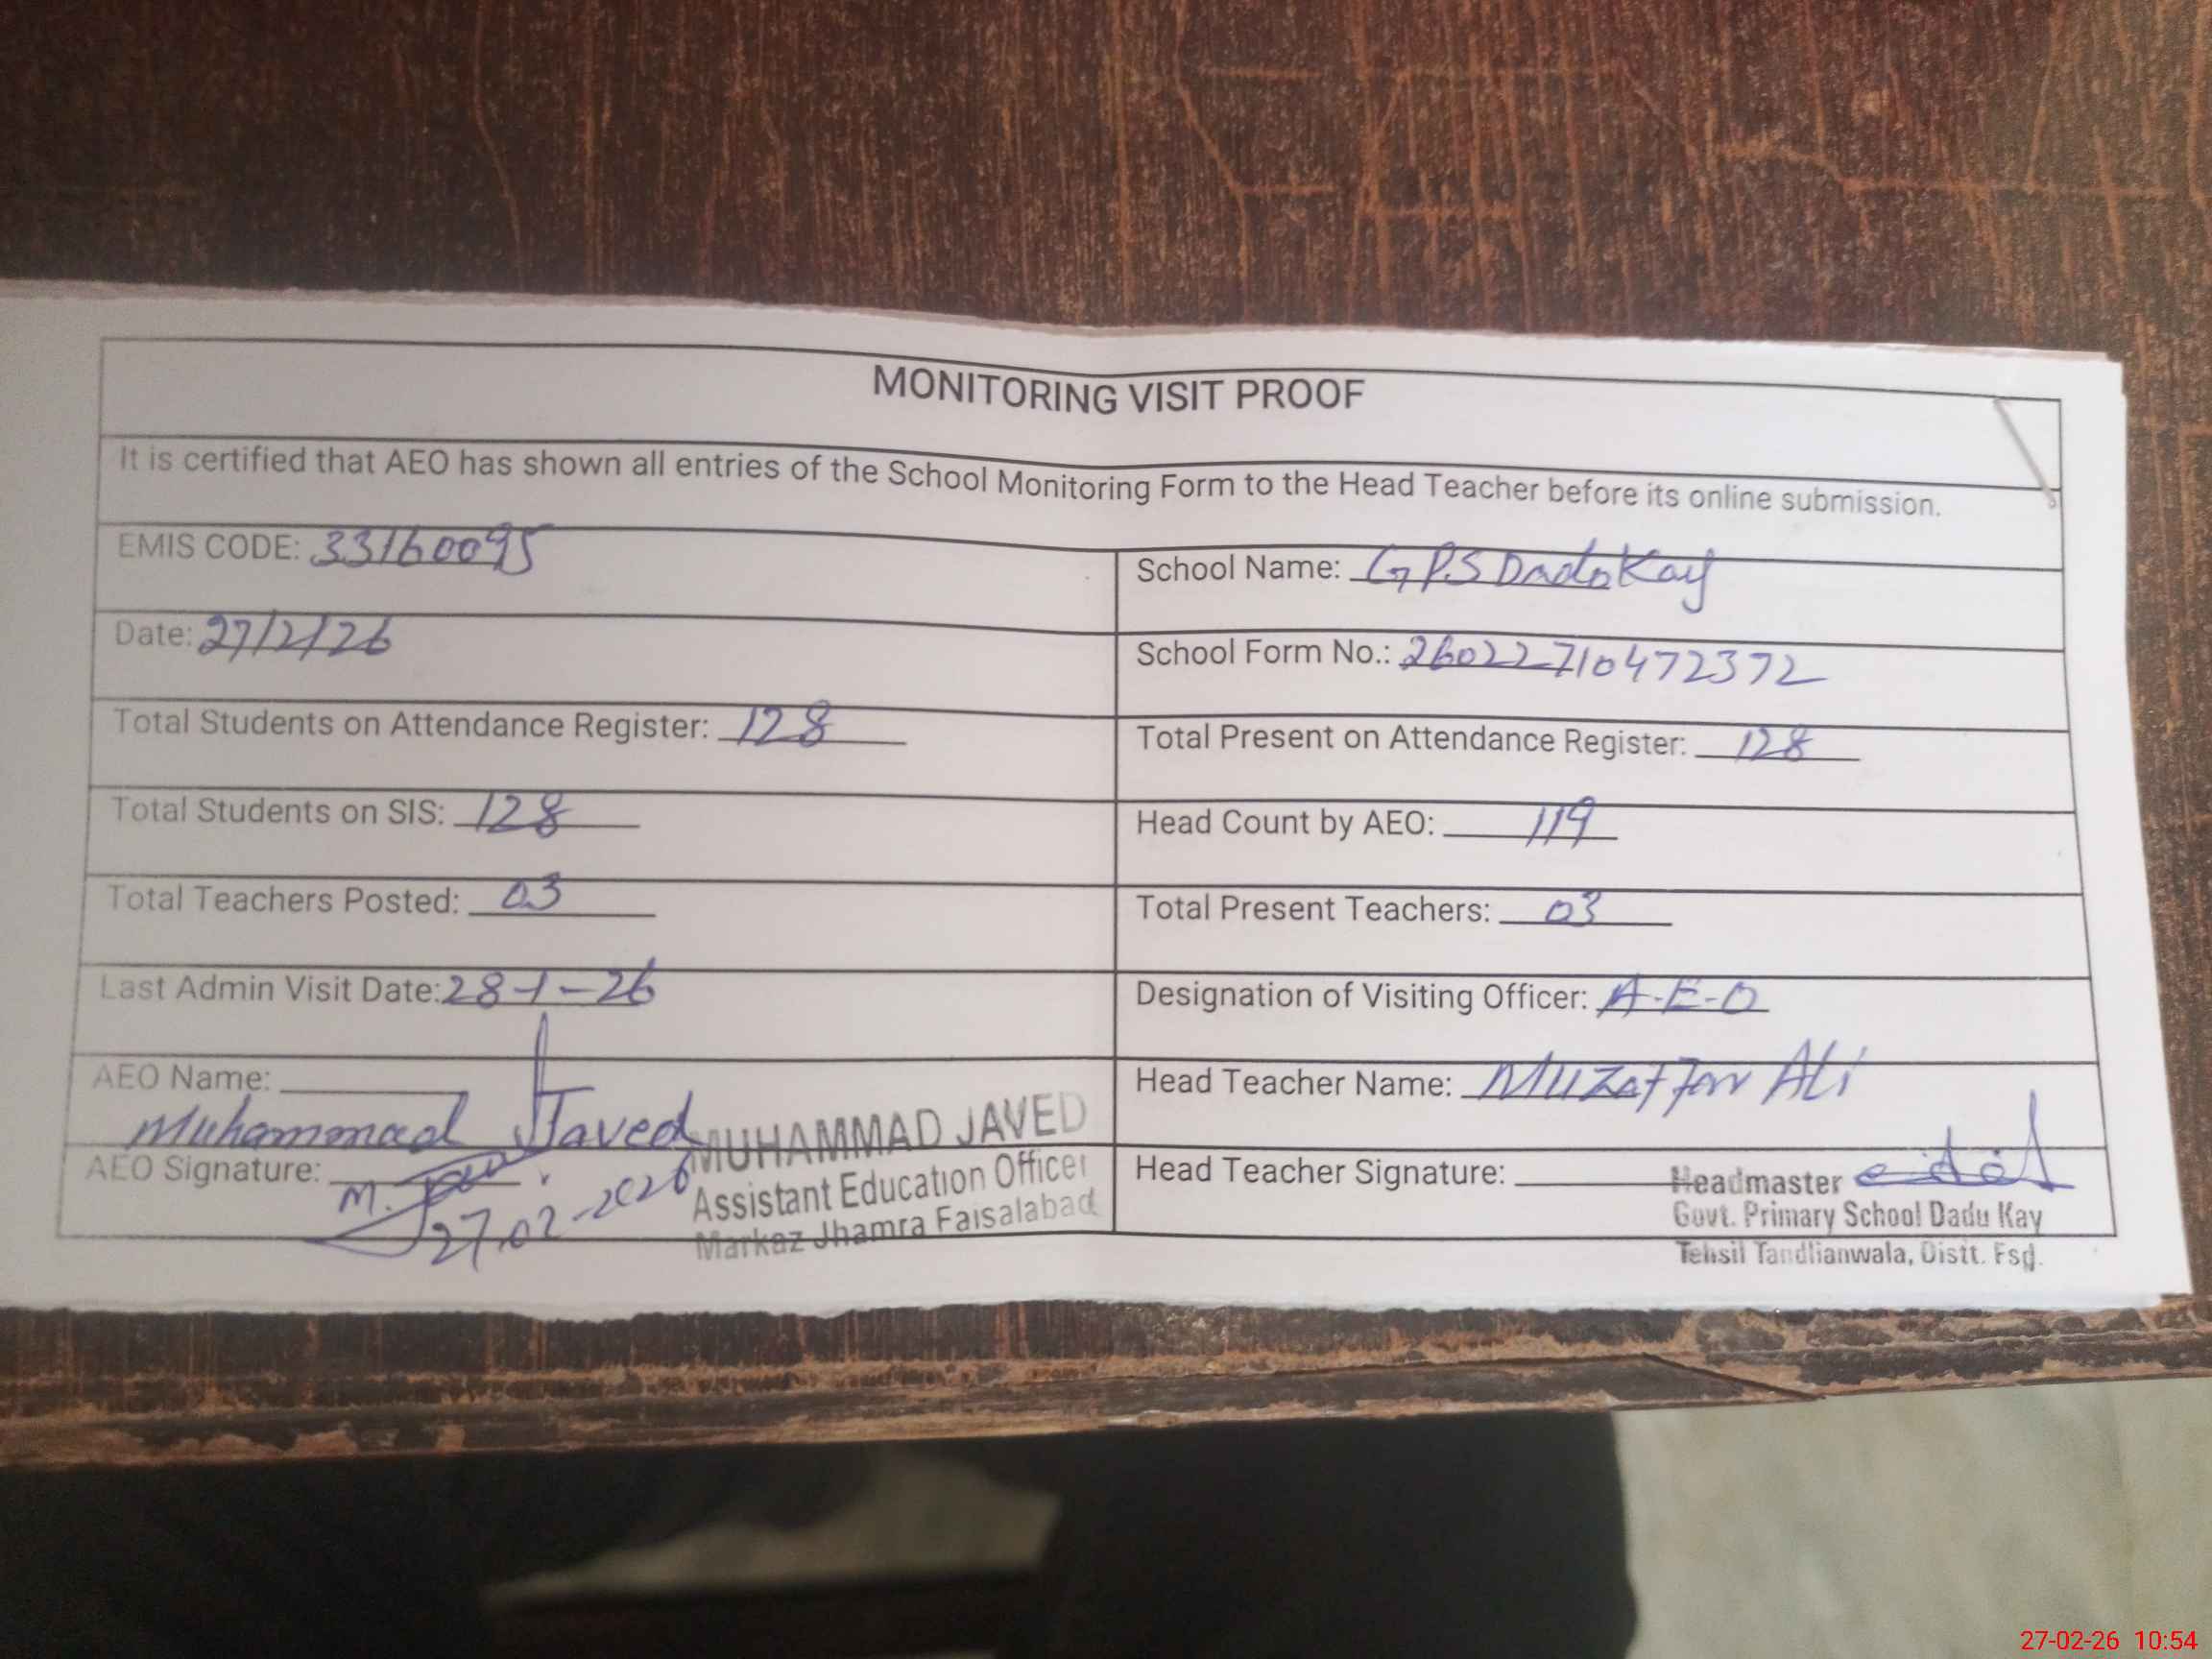 MONITORING VISIT PROOF
It is certified that AEO has shown all entries of the School Monitoring Form to the Head Teacher before its online submission.
EMIS CODE: 33160095
School Name: GPS Dadu Kay
Date: 27/2/26
School Form No.: 26022710472372
Total Students on Attendance Register: 128
Total Present on Attendance Register: 128
Total Students on SIS: 128
Head Count by AEO: 119
Total Teachers Posted: 03
Total Present Teachers: 03
Last Admin Visit Date: 28-1-26
Designation of Visiting Officer: A-E-O
AEO Name:
Muhammad Javed
Head Teacher Name: Muzaffar Ali
MUHAMMAD JAVED
Assistant Education Officer
Markaz Jhamra Faisalabad
AEO Signature:
27.02-2026
Head Teacher Signature:
Headmaster
Govt. Primary School Dadu Kay
Tehsil Tandlianwala, Distt. Fsd.
27-02-26 10:54